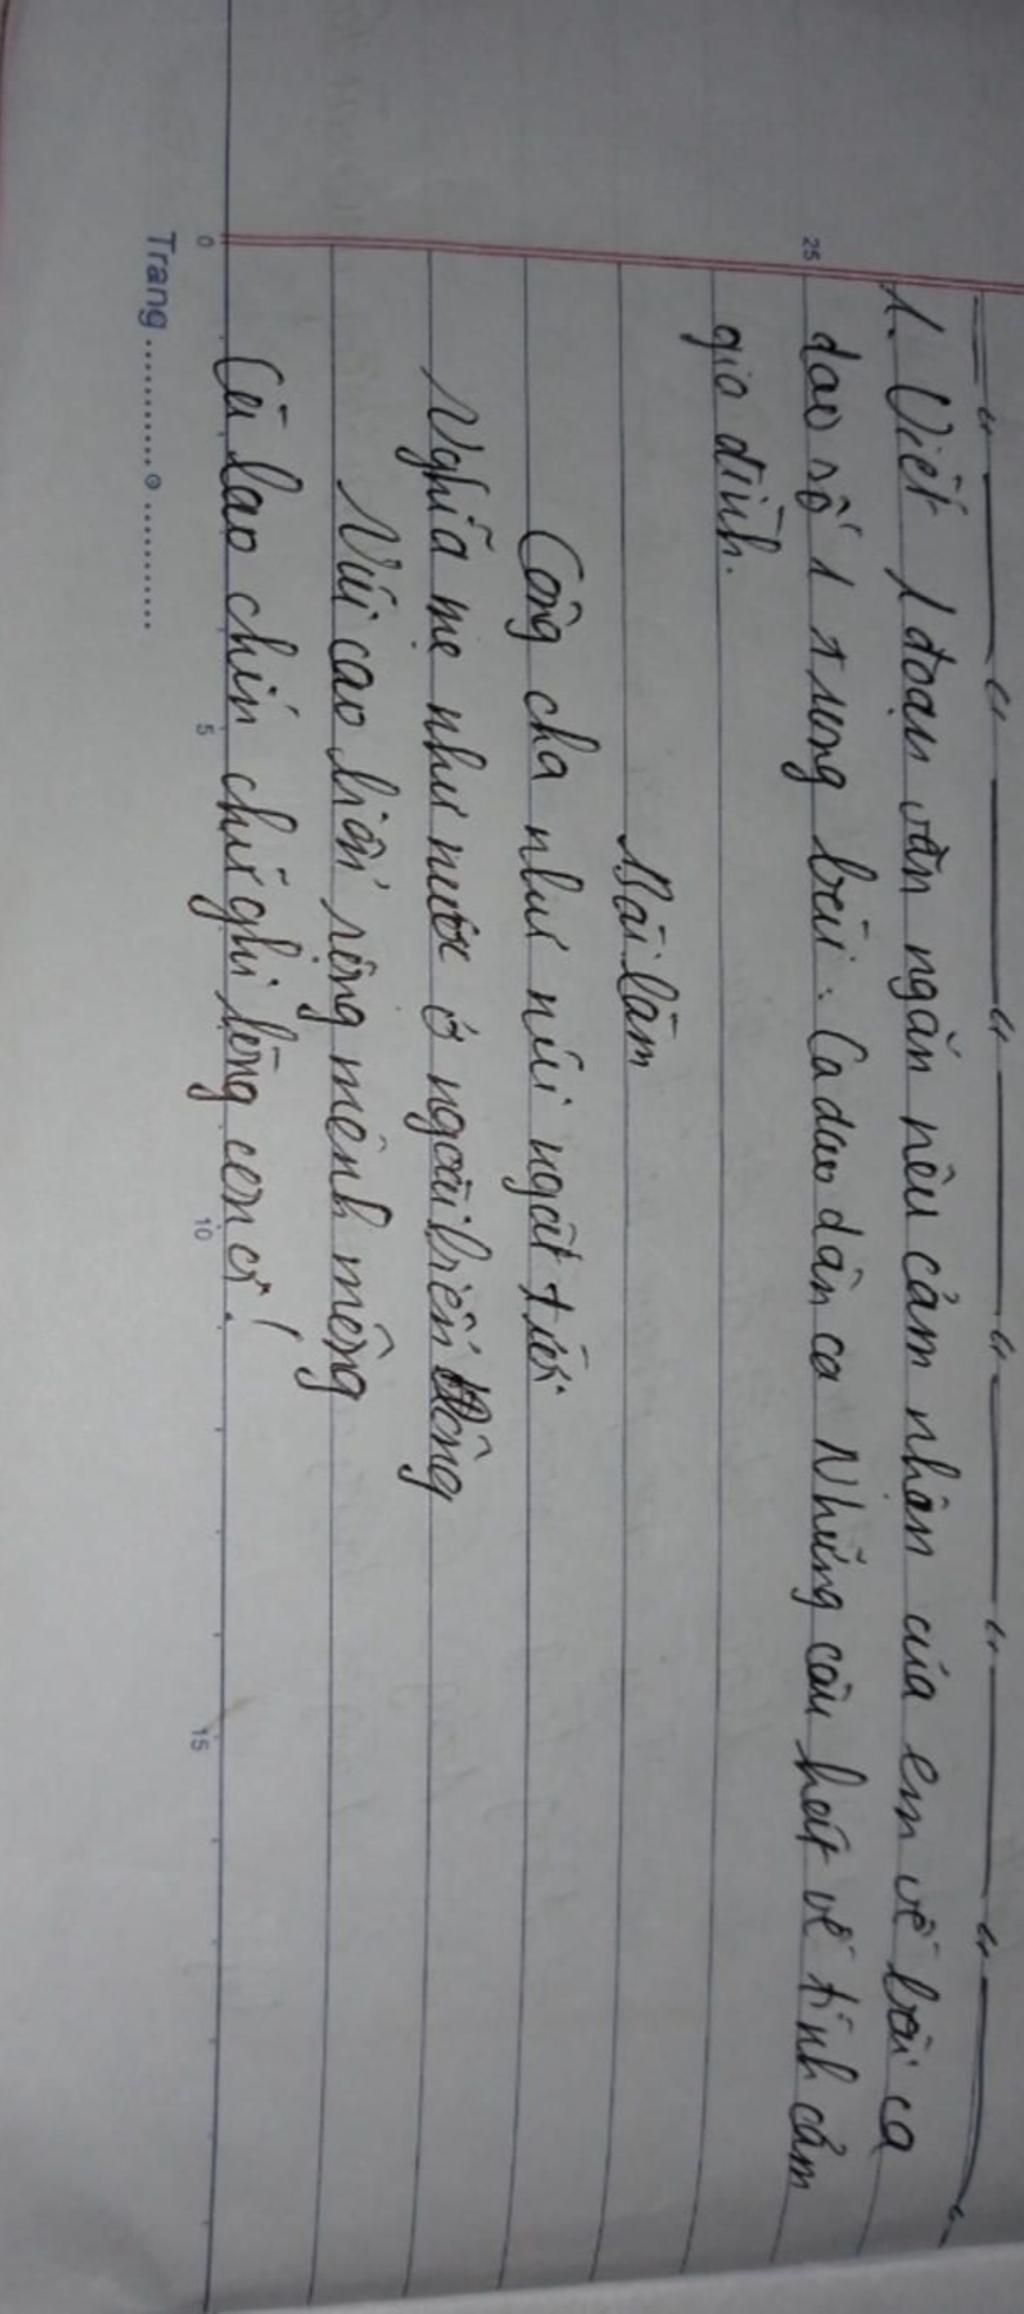 1. Viết 1 đoạn văn ngắn nêu cảm nhận của em về bài ca
dao số 1 trong bài: Ca dao dân ca Những câu hát về tình cảm
gia đình.
Bài làm
Công cha như núi ngất trời
Nghĩa mẹ như nước ở ngoài biển Đông
Núi cao biển rộng mênh mông
Cù lao chín chữ ghi lòng con ơi!
Trang
25
0
5
10
15